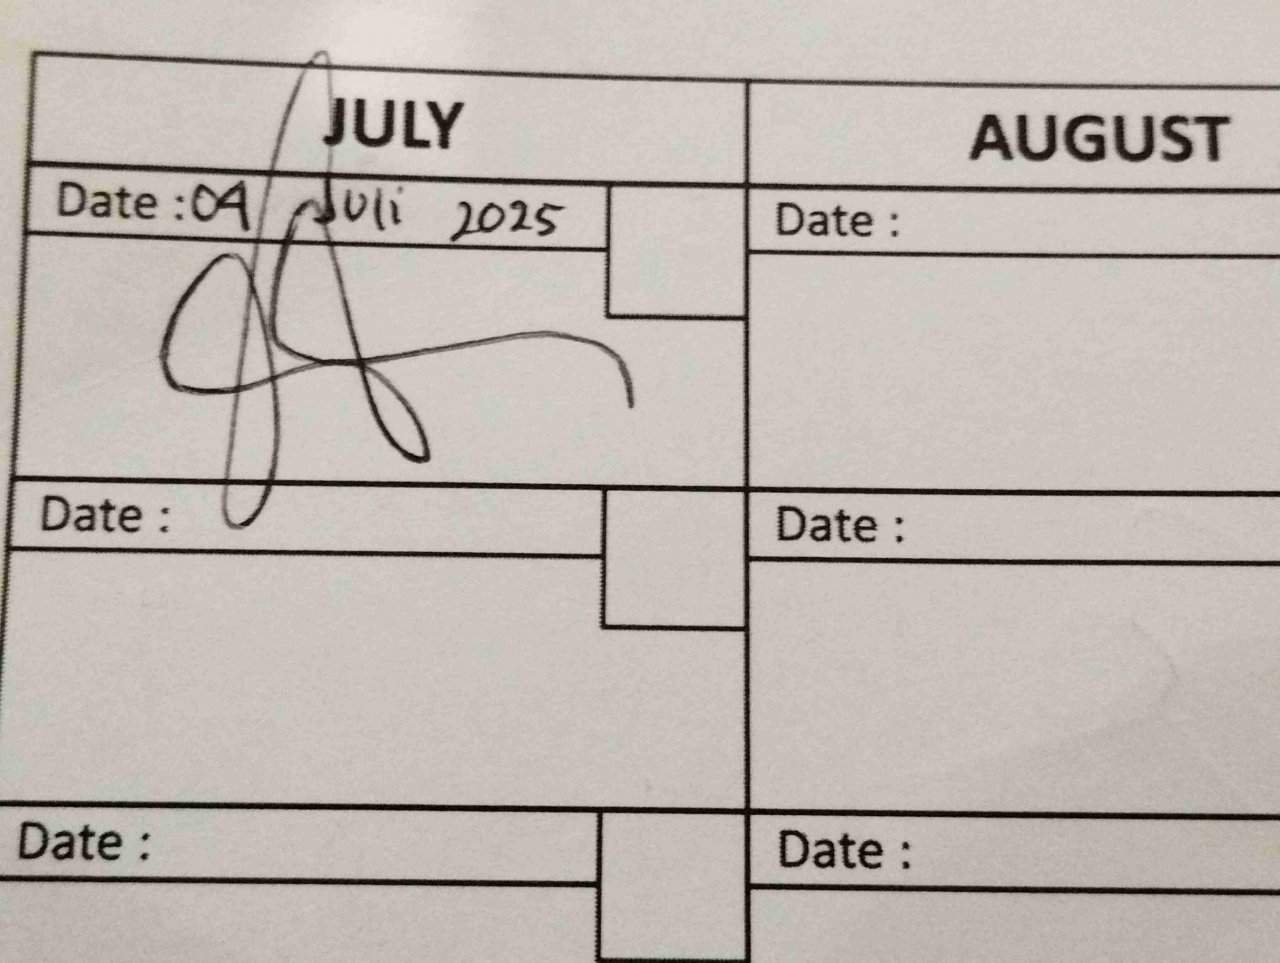 JULY AUGUST
Date : 04 Juli 2025 Date :
Date : Date :
Date : Date :